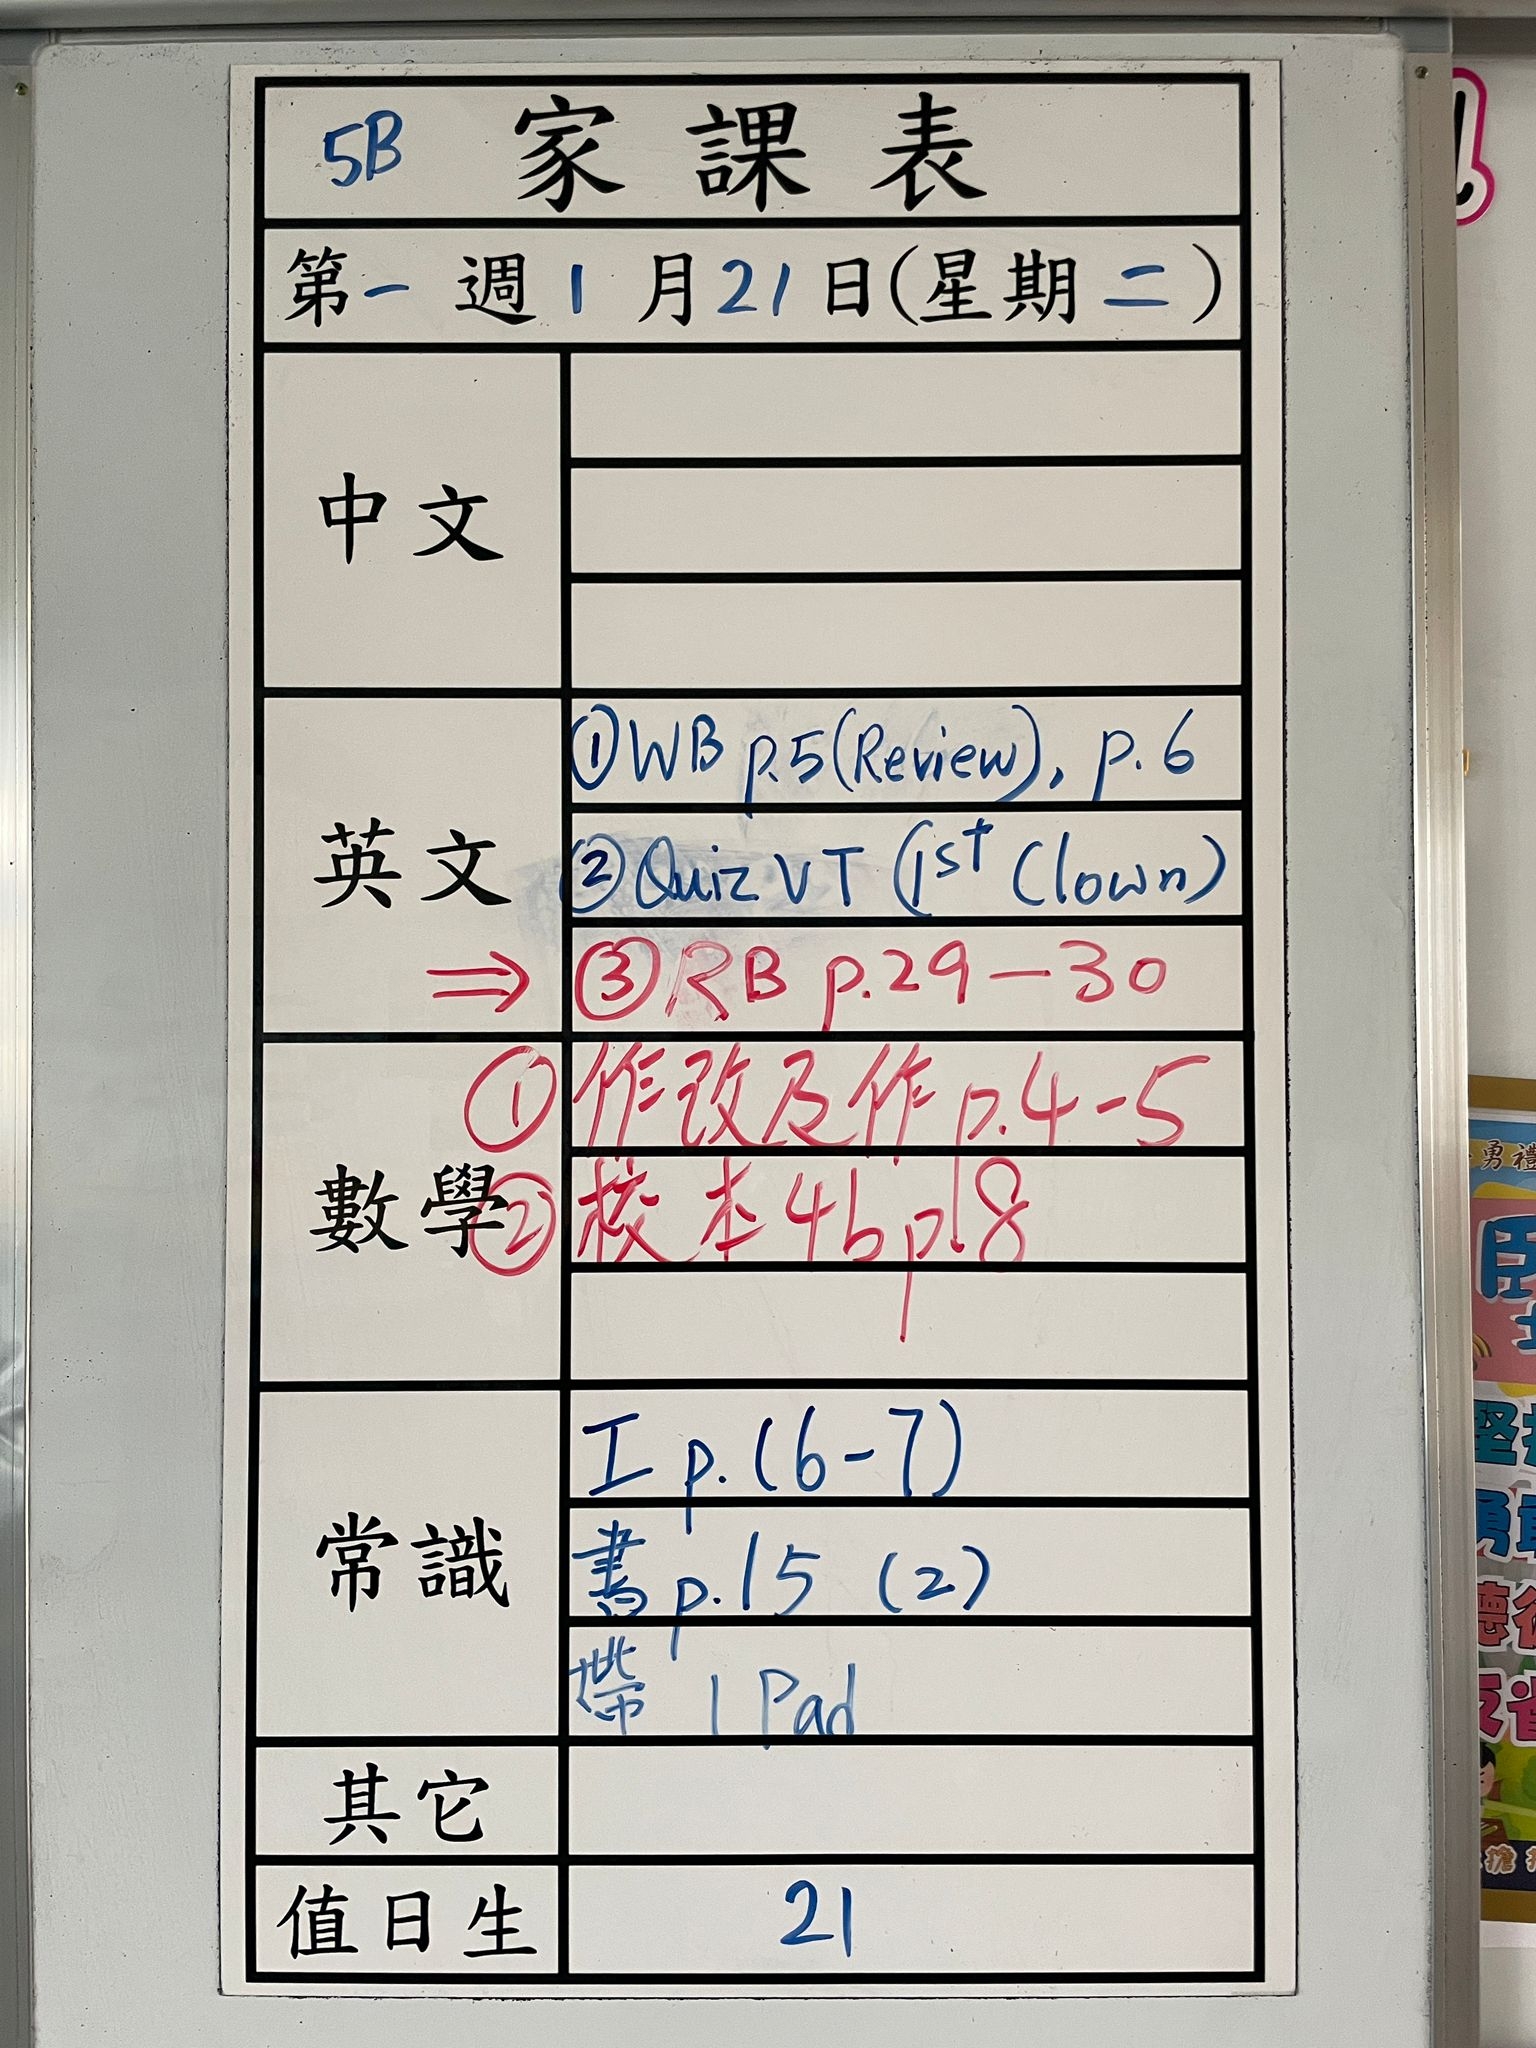 5B 家課表
第一週1月21日(星期二)
中文
英文
①WB p.5(Review), p.6
②Quiz VT (1st Clown)
⇒ ③RB p.29-30
數學
①作改及作p.4-5
②校本4b p.18
常識
工 p.(6-7)
書p.15 (2)
帶 IPad
其它
值日生
21
勇